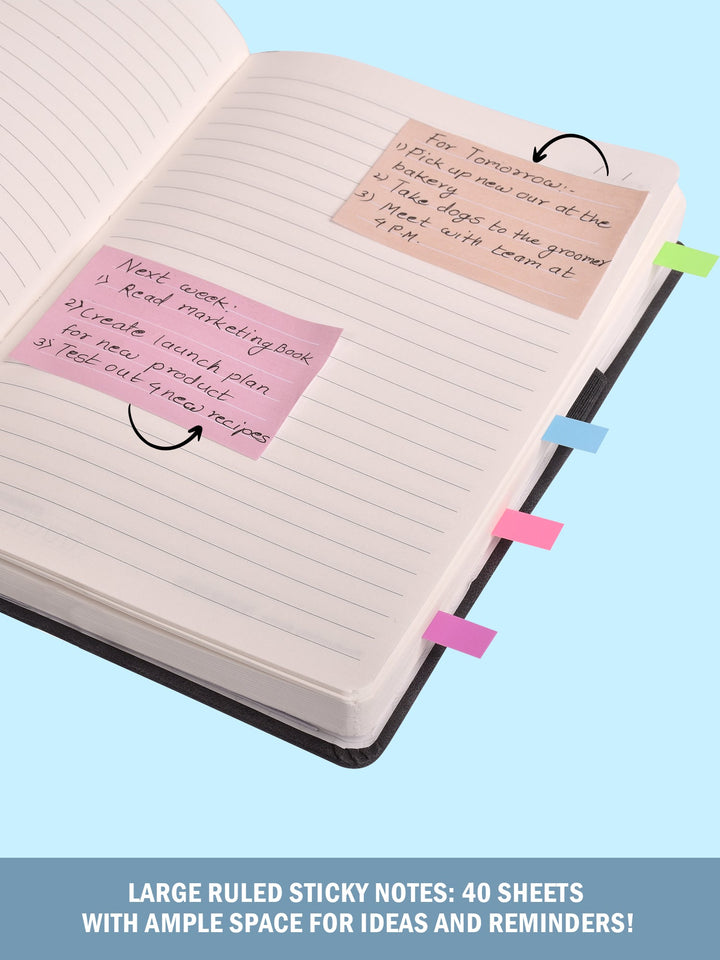 For Tomorrow:-
1) Pick up new our at the
bakery
2) Take dogs to the groomer
3) Meet with team at
4 P.M.
Next week:
1) Read marketing Book
2) Create launch plan
for new product
3) Test out 4 new recipes
LARGE RULED STICKY NOTES: 40 SHEETS
WITH AMPLE SPACE FOR IDEAS AND REMINDERS!